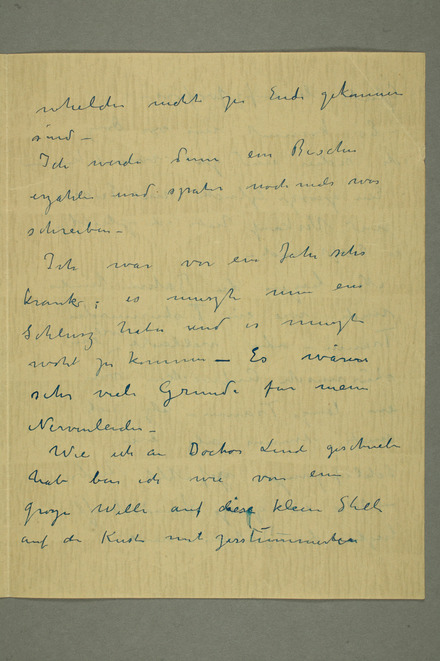 nicht zu Ende gekommen
sind –
Ich werde dann ein Bischen
erzählen und später nochmals was
schreiben –
Ich war vor ein Jahr sehr
krank; es muszte nun ein
Schlusz haben und es muszte
so kommen – Es wären
sehr viele Grunde fur mein
Nervenleiden –
Wie ich an Doctor Lind geschrieben
habe bin ich wie von ein
grosze Welle auf diese klein Stelle
auf der Kuste mit